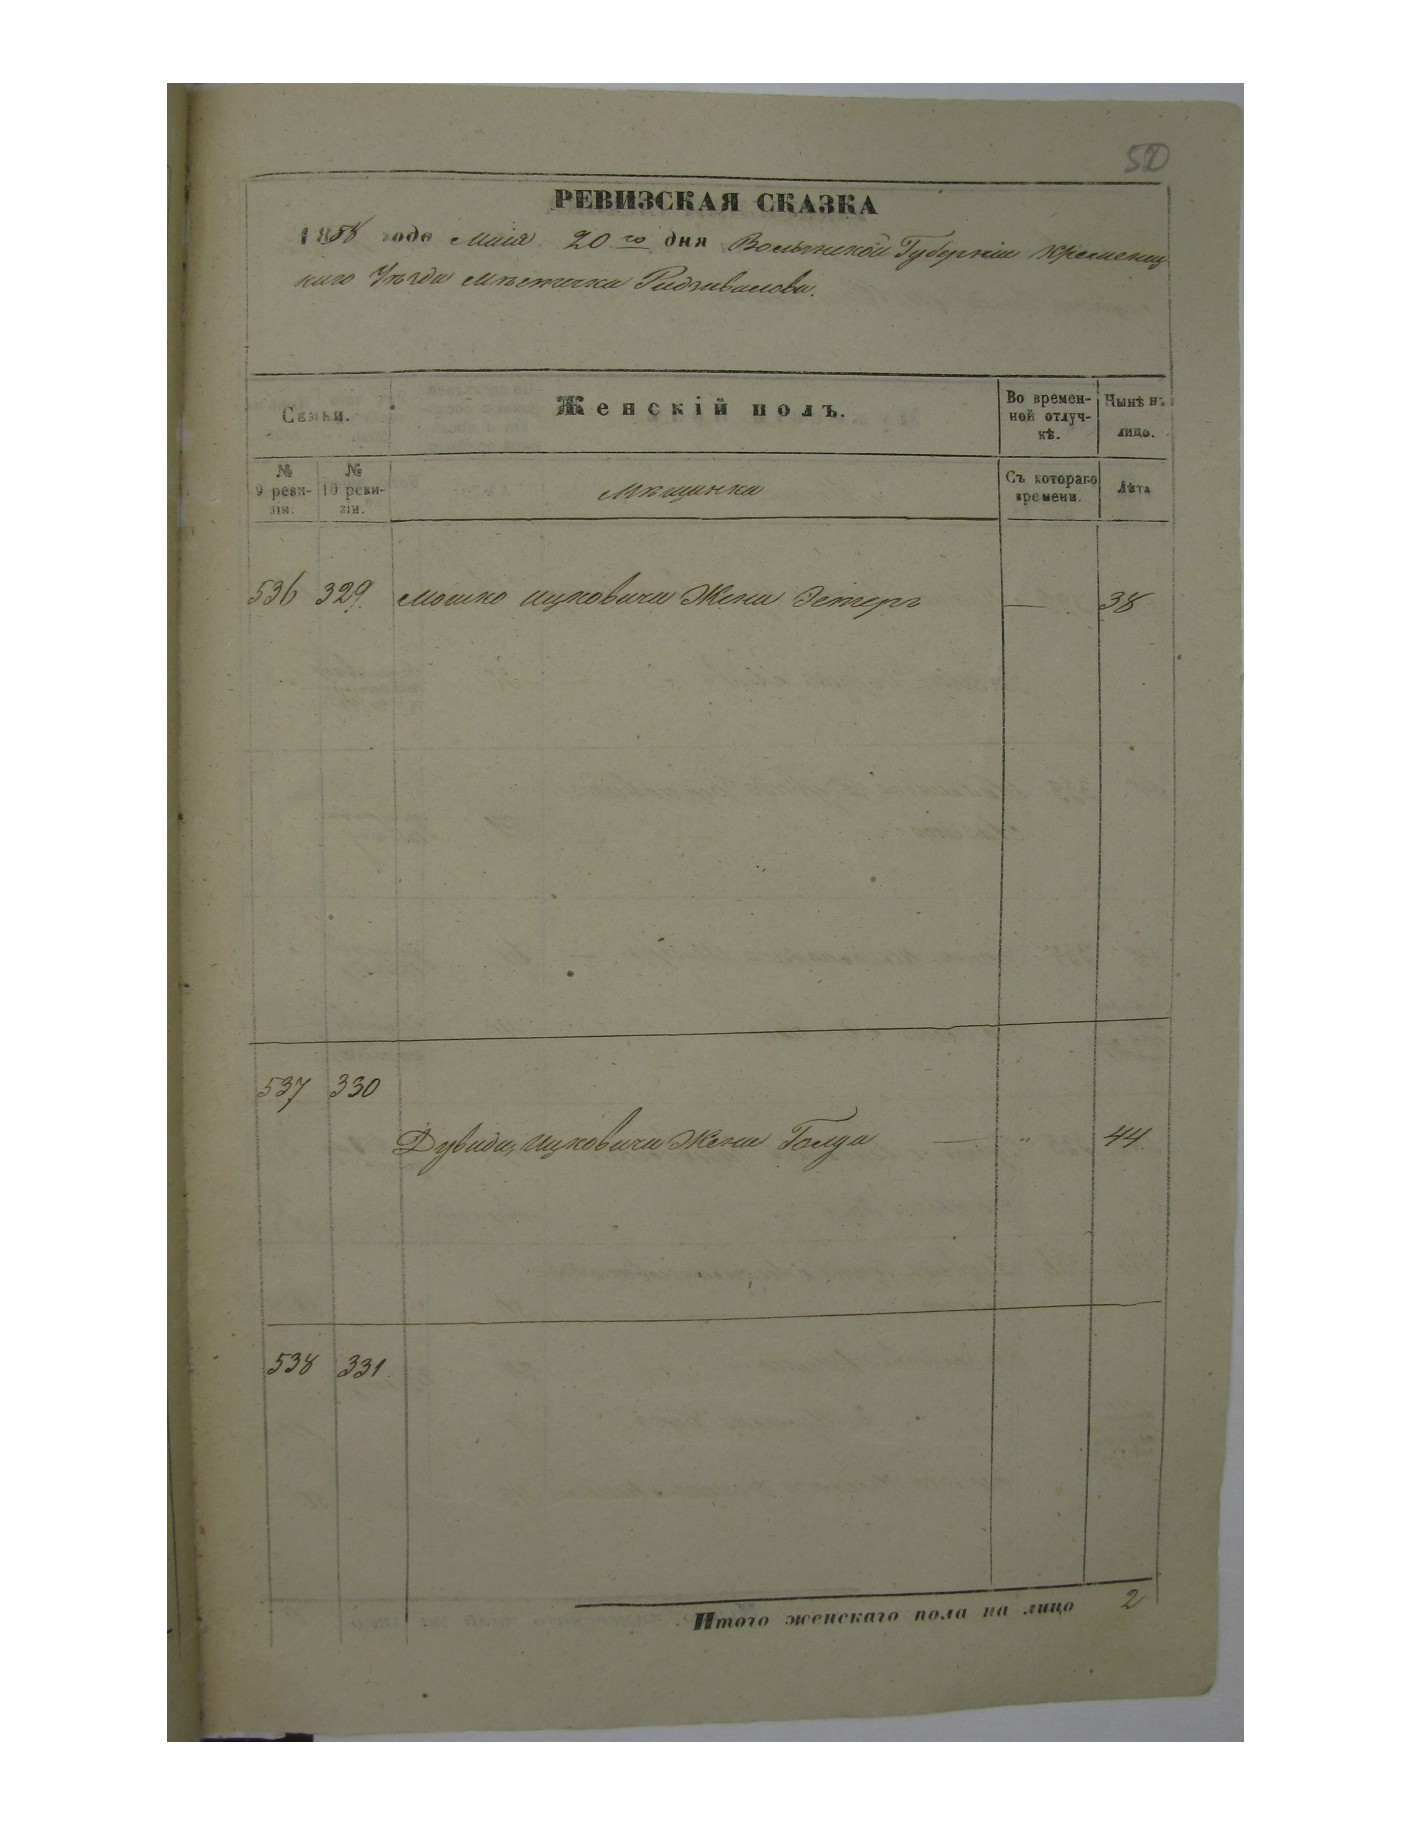 52
РЕВИЗСКАЯ СКАЗКА
1858 года Маія 20го дня Волынской Губерніи Кременец
каго Уѣзда Мѣстечка Радзивилова.
Семьи.
Женскій полъ.
Во времен-
ной отлуч-
кѣ.
Нынѣ на
лицо.
№
9 реви-
зіи.
№
10 реви-
зіи.
Мѣщанки
Съ котораго
времени.
Лѣта
536 329. Мошко Ицковича Жена Эстеръ — 38
537 330
Дувида Ицковича Жена Голда — " 44.
538 331.
Итого женскаго пола на лицо 2